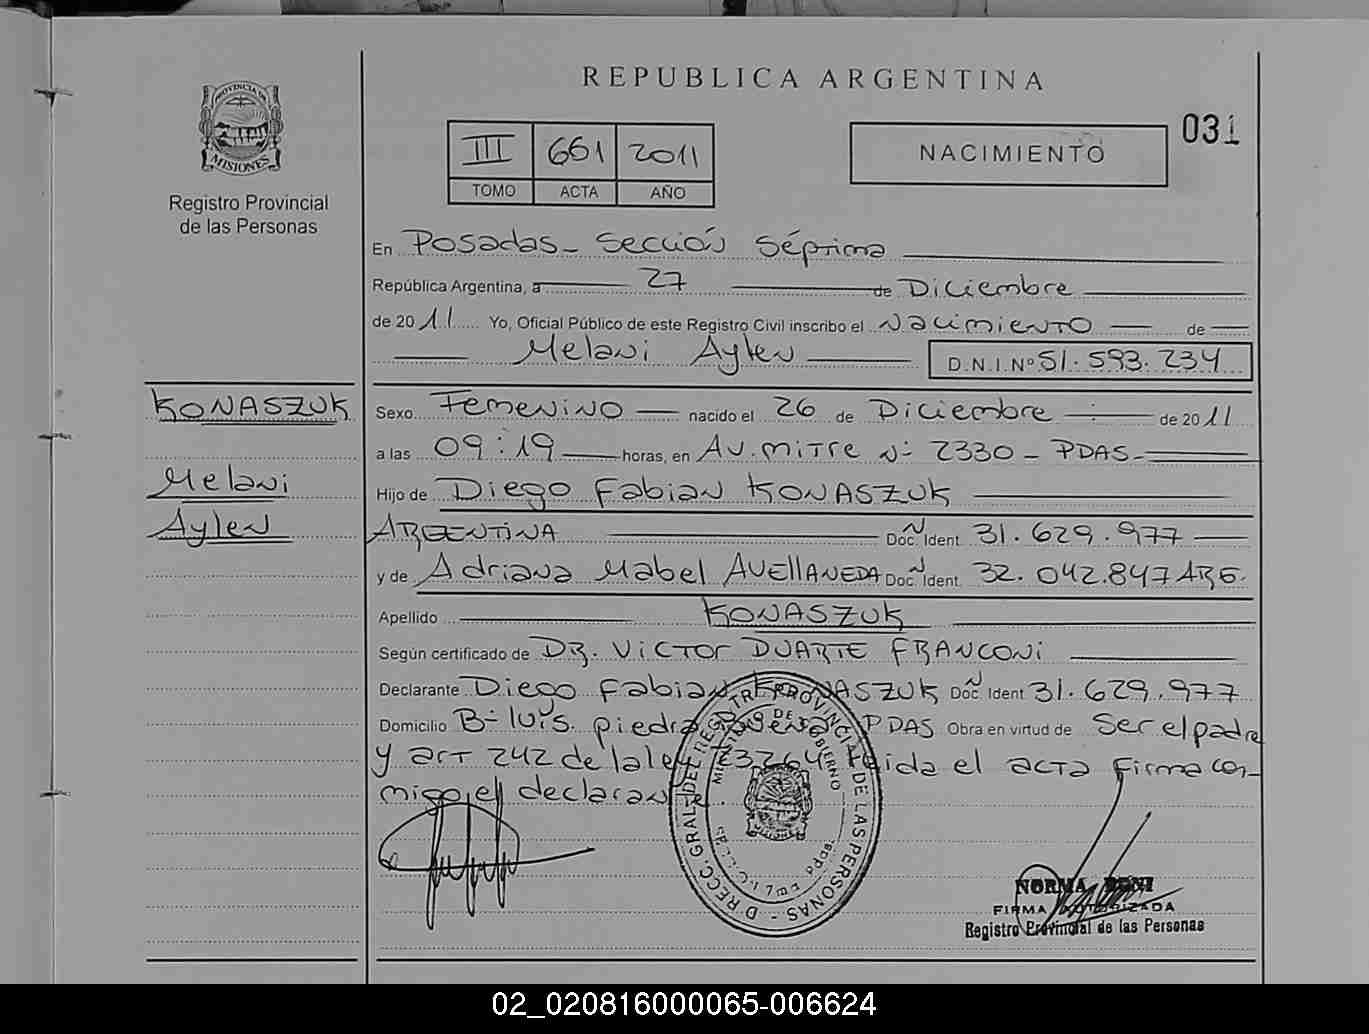 REPUBLICA ARGENTINA
PROVINCIA DE MISIONES
Registro Provincial
de las Personas
III 661 2011
TOMO ACTA AÑO
NACIMIENTO
031
En Posadas - Sección Séptima
República Argentina, a 27 de Diciembre
de 2011 Yo, Oficial Público de este Registro Civil inscribo el Nacimiento de
Melani Aylen D.N.I.Nº 51.593.234
KONASZUK
Melani
Aylen
Sexo Femenino nacido el 26 de Diciembre de 2011
a las 09:19 horas, en Av. mitre Nº 2330 - PDAS-
Hijo de Diego Fabian KONASZUK
ARGENTINA Doc. Ident. 31.629.977
y de Adriana Mabel AVEllANEDA Doc. Ident. 32.042.847 ARG.
Apellido KONASZUK
Según certificado de DR. VICTOR DUARTE FRANCONi
Declarante Diego Fabian KONASZUK Doc. Ident 31.629.977
Domicilio Bº luis piedra Buena PDAS Obra en virtud de Ser el padre
y art 242 de la ley 23264 leida el acta firma con-
migo el declarante.
DIRECC. GRAL. DEL REGISTRO PROVINCIAL DE LAS PERSONAS
MINISTERIO DE GOBIERNO
Pdas.
NORMA
FIRMA AUTORIZADA
Registro Provincial de las Personas
02_020816000065-006624